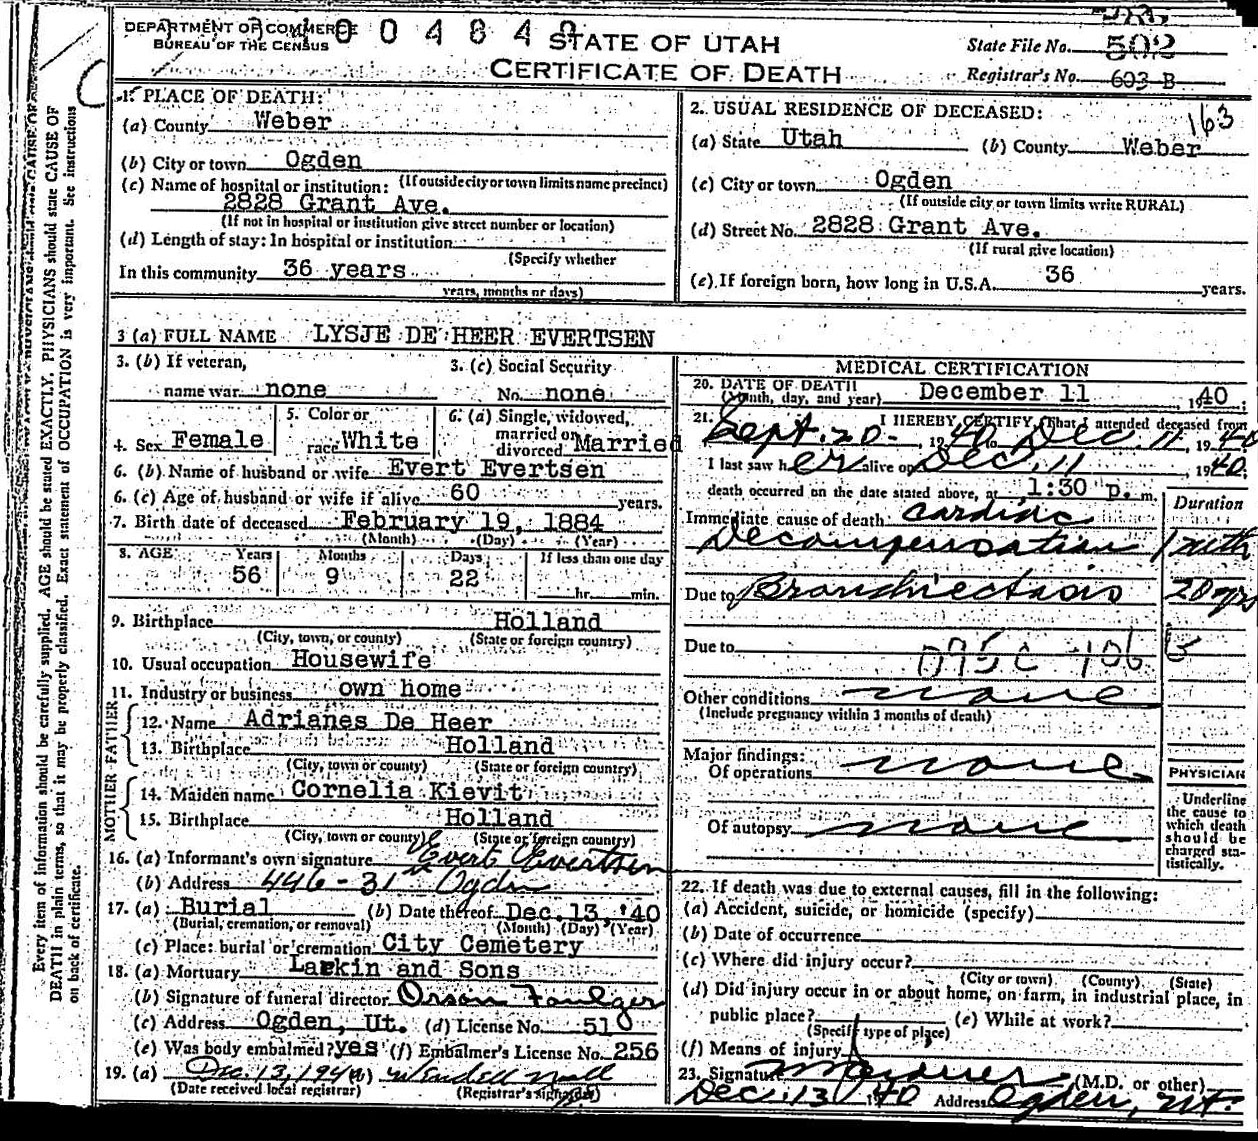 DEPARTMENT OF COMMERCE
BUREAU OF THE CENSUS
STATE OF UTAH
CERTIFICATE OF DEATH
State File No. 502
Registrar's No. 603 B
163
1. PLACE OF DEATH:
(a) County Weber
(b) City or town Ogden
(If outside city or town limits name precinct)
(c) Name of hospital or institution:
2828 Grant Ave.
(If not in hospital or institution give street number or location)
(d) Length of stay: In hospital or institution
(Specify whether
In this community 36 years
years, months or days)
2. USUAL RESIDENCE OF DECEASED:
(a) State Utah (b) County Weber
(c) City or town Ogden
(If outside city or town limits write RURAL)
(d) Street No. 2828 Grant Ave.
(If rural give location)
(e) If foreign born, how long in U.S.A. 36 years.
3 (a) FULL NAME LYSJE DE HEER EVERTSEN
3. (b) If veteran, name war none
3. (c) Social Security No. none
4. Sex Female
5. Color or race White
6. (a) Single, widowed, married or divorced Married
6. (b) Name of husband or wife Evert Evertsen
6. (c) Age of husband or wife if alive 60 years.
7. Birth date of deceased February 19, 1884
(Month) (Day) (Year)
8. AGE Years Months Days If less than one day
56 9 22 hr. min.
9. Birthplace Holland
(City, town, or county) (State or foreign country)
10. Usual occupation Housewife
11. Industry or business own home
FATHER
12. Name Adrianes De Heer
13. Birthplace Holland
(City, town or county) (State or foreign country)
MOTHER
14. Maiden name Cornelia Kievit
15. Birthplace Holland
(City, town or county) (State or foreign country)
16. (a) Informant's own signature Evert Evertsen
(b) Address 446 - 31 Ogden
17. (a) Burial (b) Date thereof Dec. 13, '40
(Burial, cremation, or removal) (Month) (Day) (Year)
(c) Place: burial or cremation City Cemetery
18. (a) Mortuary Larkin and Sons
(b) Signature of funeral director Orson Foulger
(c) Address Ogden, Ut. (d) License No. 510
(e) Was body embalmed? yes (f) Embalmer's License No. 256
19. (a) Dec. 13, 1940 (b) Wendell
(Date received local registrar) (Registrar's signature)
MEDICAL CERTIFICATION
20. DATE OF DEATH
(Month, day, and year) December 11, 1940.
21. I HEREBY CERTIFY, That I attended deceased from
Sept. 20, 1940 to Dec. 11, 1940
I last saw her alive on Dec. 11, 1940.
death occurred on the date stated above, at 1:30 p. m.
Duration
Immediate cause of death cardiac
Decompensation 1 mth
Due to Bronchiectasis 20 yrs
Due to
106 b
Other conditions none
(Include pregnancy within 3 months of death)
Major findings:
Of operations none
Of autopsy none
PHYSICIAN
Underline
the cause to
which death
should be
charged sta-
tistically.
22. If death was due to external causes, fill in the following:
(a) Accident, suicide, or homicide (specify)
(b) Date of occurrence
(c) Where did injury occur?
(City or town) (County) (State)
(d) Did injury occur in or about home, on farm, in industrial place, in
public place? (e) While at work?
(Specify type of place)
(f) Means of injury
23. Signature (M.D. or other)
Dec. 13 1940 Address Ogden, Ut.
Every item of information should be carefully supplied. AGE should be stated EXACTLY. PHYSICIANS should state CAUSE OF
DEATH in plain terms, so that it may be properly classified. Exact statement of OCCUPATION is very important. See instructions
on back of certificate.